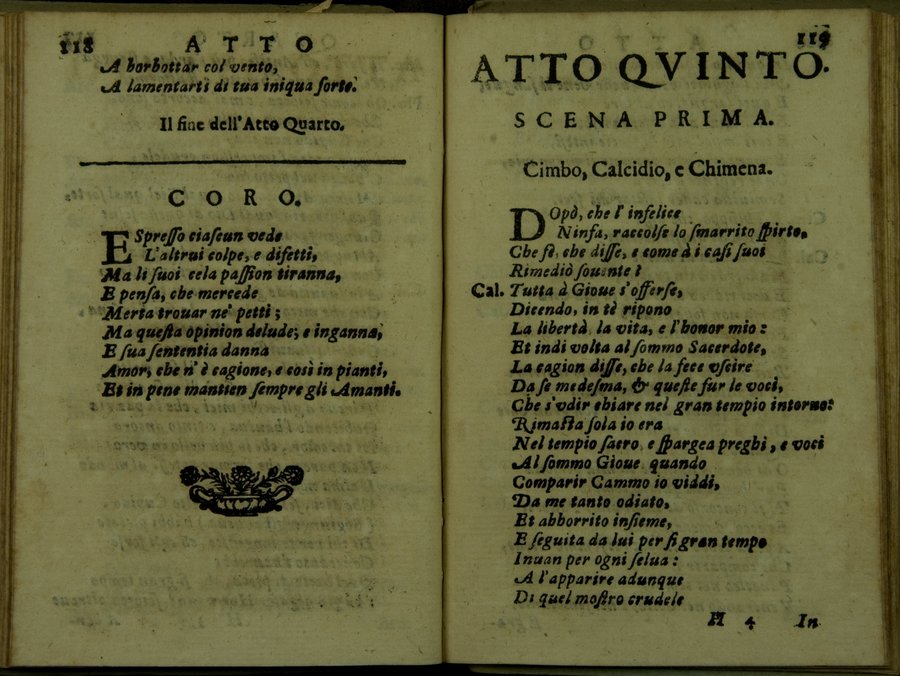 118 ATTO
A borbottar col vento,
A lamentarti di tua iniqua ſorte.
Il fine dell'Atto Quarto.
CORO.
ESpreſſo ciaſcun vede
L'altrui colpe, e difetti,
Ma li ſuoi cela paſſion tiranna,
E penſa, che mercede
Merta trouar ne' petti;
Ma queſta opinion delude, e inganna,
E ſua ſententia danna
Amor, che n'è cagione, e così in pianti,
Et in pene mantien ſempre gli Amanti.
119
ATTO QVINTO.
SCENA PRIMA.
Cimbo, Calcidio, e Chimena.
DOpò, che l'infelice
Ninfa, raccolſe lo ſmarrito ſpirto,
Che fè, che diſſe, e come à i caſi ſuoi
Rimediò ſouente?
Cal. Tutta à Gioue s'offerſe,
Dicendo, in tè ripono
La libertà, la vita, e l'honor mio:
Et indi volta al ſommo Sacerdote,
La cagion diſſe, che la fece vſcire
Da ſe medeſma, & queſte fur le voci,
Che s'vdir chiare nel gran tempio intorno:
Rimaſta ſola io era
Nel tempio ſacro, e ſpargea preghi, e voci
Al ſommo Gioue, quando
Comparir Cammo io viddi,
Da me tanto odiato,
Et abborrito inſieme,
E ſeguita da lui per ſi gran tempo
Inuan per ogni ſelua:
A l'apparire adunque
Di quel moſtro crudele
H 4 In